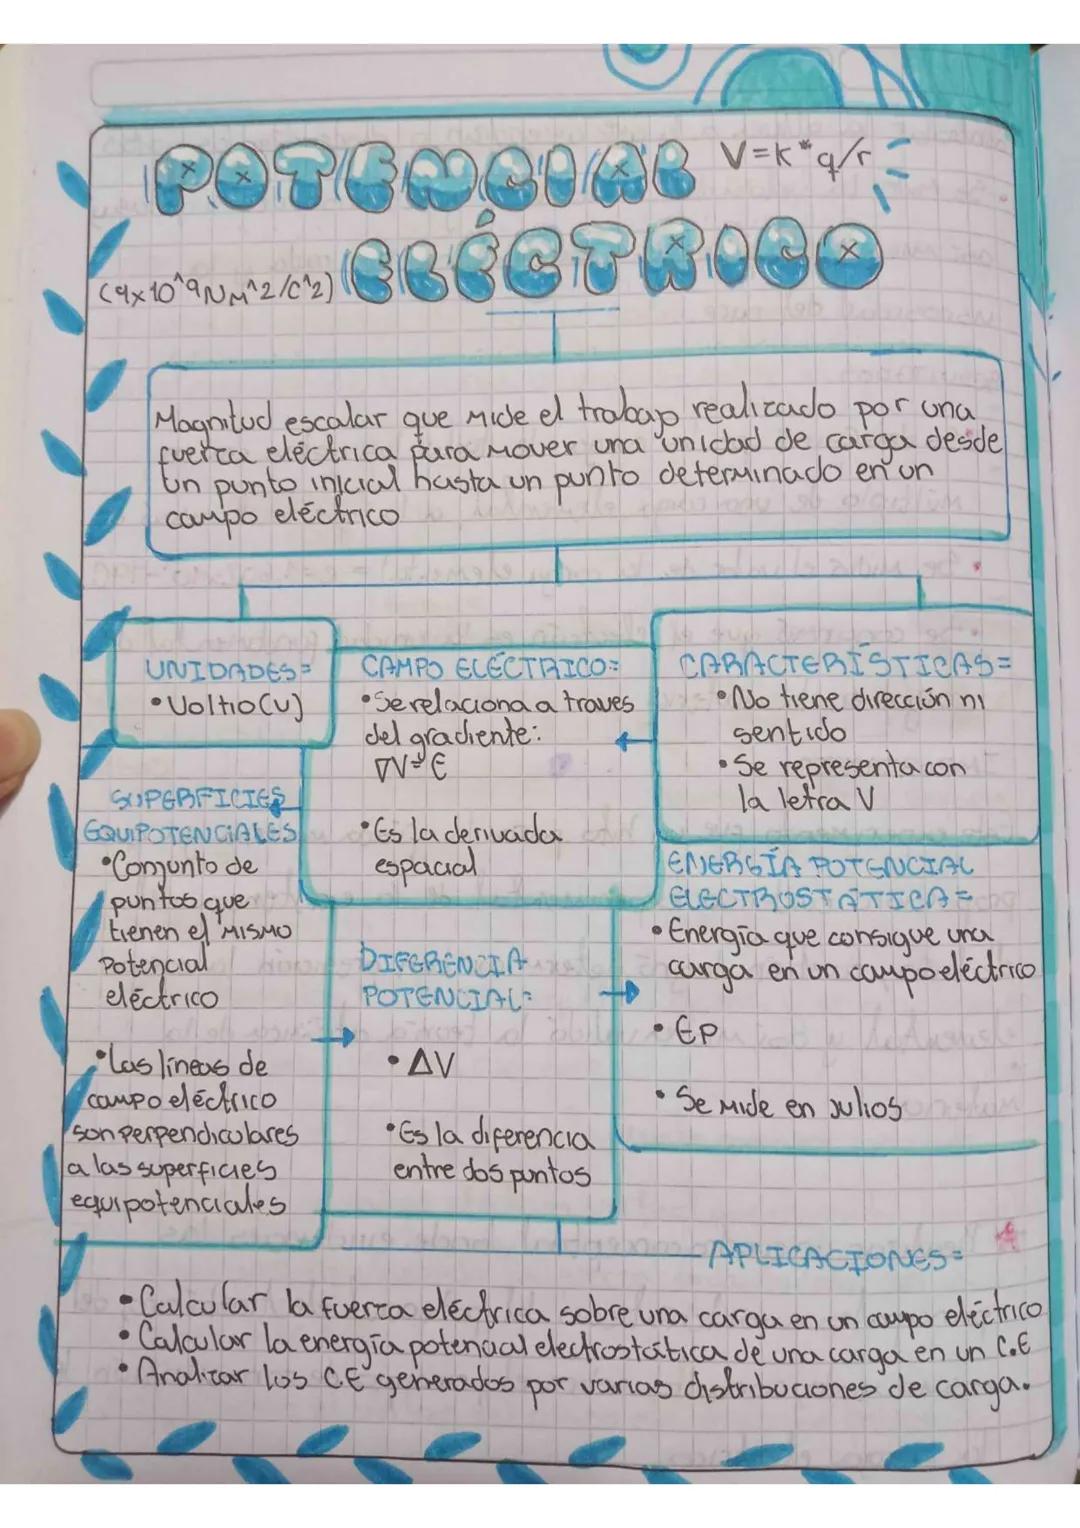 POTENCIAL V=k*q/r
ELÉCTRICO
(9x10^9NM^2/C^2)
Magnitud escalar que mide el trabajo realizado por una
fuerza eléctrica para mover una unidad de carga desde
un punto inicial hasta un punto determinado en un
campo eléctrico
UNIDADES=
•Voltio(v)
CAMPO ELÉCTRICO=
•Se relaciona a traves
del gradiente:
∇V=E
•Es la derivada
espacial
CARACTERÍSTICAS=
•No tiene dirección ni
sentido
•Se representa con
la letra V
SUPERFICIES
EQUIPOTENCIALES
•Conjunto de
puntos que
tienen el MISMO
Potencial
eléctrico
•Las líneas de
campo eléctrico
son perpendiculares
a las superficies
equipotenciales
DIFERENCIA
POTENCIAL=
•ΔV
•Es la diferencia
entre dos puntos
ENERGÍA POTENCIAL
ELECTROSTÁTICA=
•Energía que consigue una
carga en un campo eléctrico
•EP
•Se mide en Julios
APLICACIONES=
•Calcular la fuerza eléctrica sobre una carga en un campo eléctrico
•Calcular la energía potencial electrostática de una carga en un C.E
•Analizar los CE generados por varias distribuciones de carga.